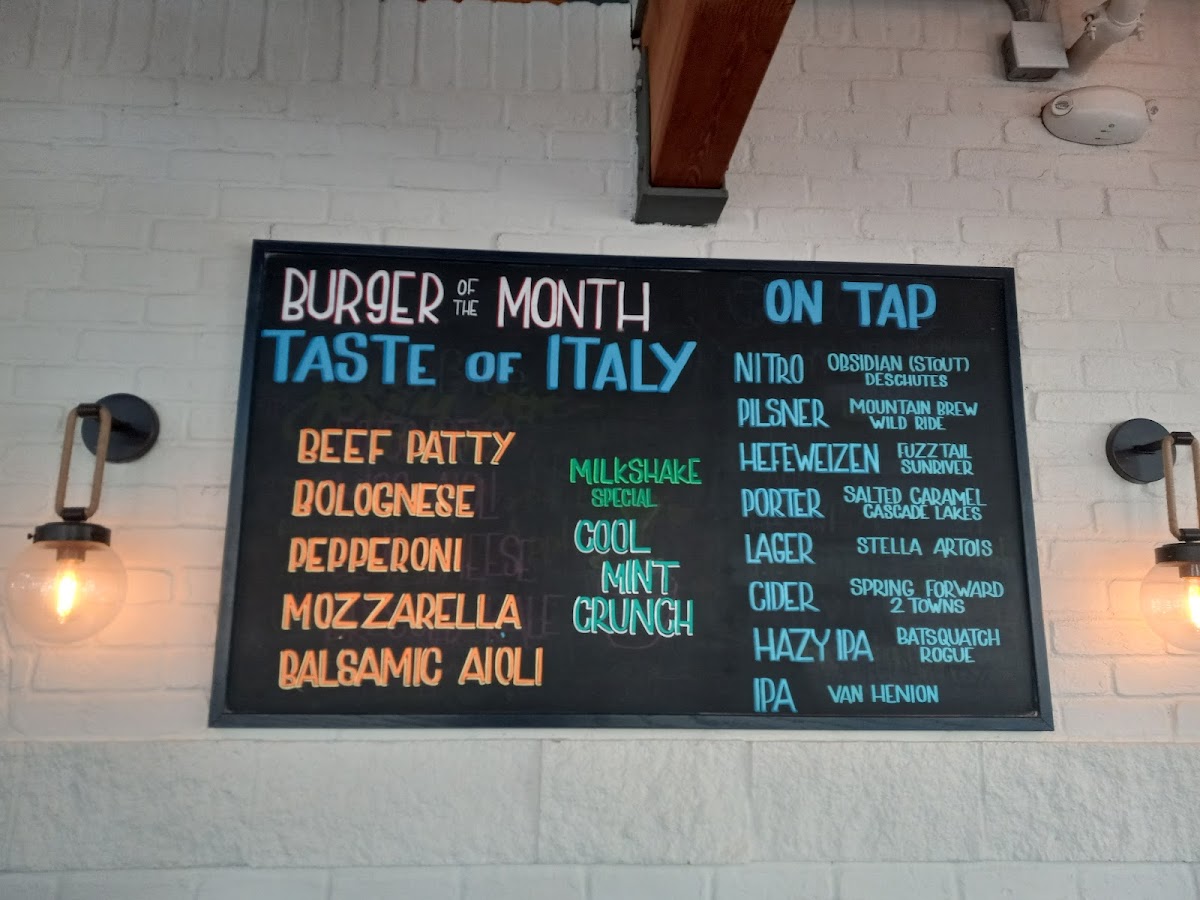 BURGER OF THE MONTH
TASTE OF ITALY
BEEF PATTY
BOLOGNESE
PEPPERONI
MOZZARELLA
BALSAMIC AIOLI
MILKSHAKE
SPECIAL
COOL
MINT
CRUNCH
ON TAP
NITRO OBSIDIAN (STOUT)
DESCHUTES
PILSNER MOUNTAIN BREW
WILD RIDE
HEFEWEIZEN FUZZTAIL
SUNRIVER
PORTER SALTED CARAMEL
CASCADE LAKES
LAGER STELLA ARTOIS
CIDER SPRING FORWARD
2 TOWNS
HAZY IPA BATSQUATCH
ROGUE
IPA VAN HENION